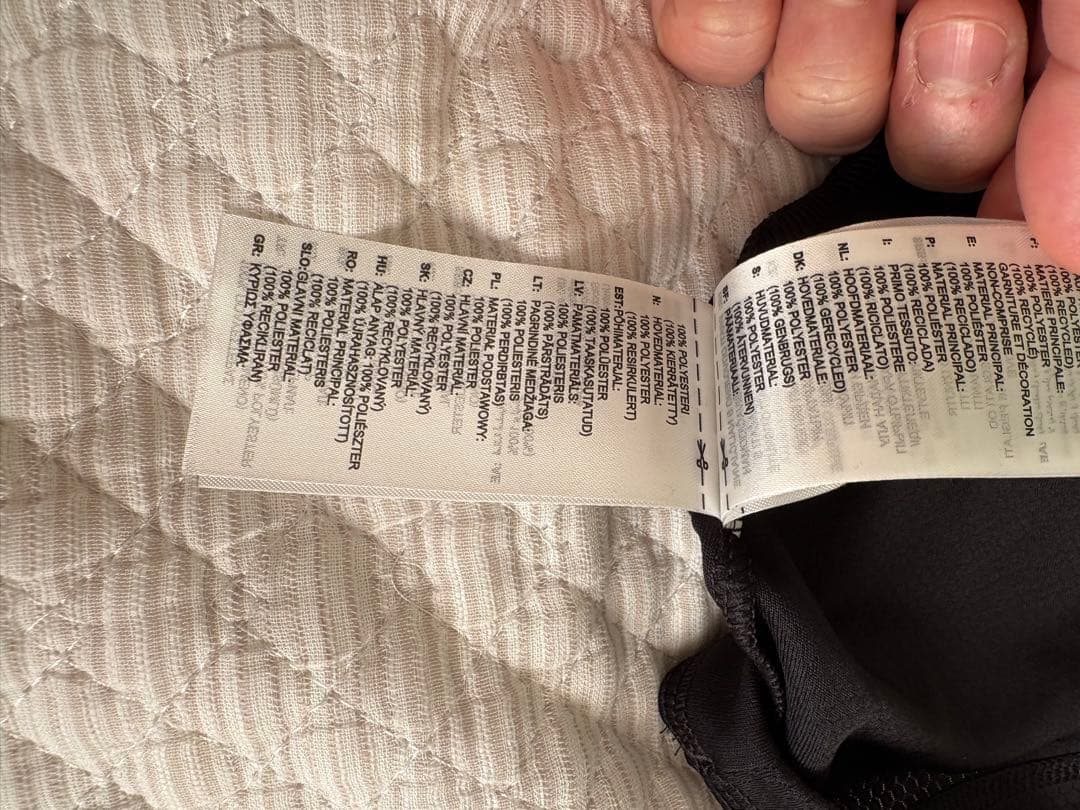 100% RECYCLED
F:
MATIERE PRINCIPALE:
100% POLYESTER
(100% RECYCLÉ)
GARNITURE ET DÉCORATION
NON COMPRISES
E:
MATERIAL PRINCIPAL:
100% POLIÉSTER
(100% RECICLADO)
P:
MATERIAL PRINCIPAL:
100% POLIÉSTER
(100% RECICLADA)
I:
PRIMO TESSUTO:
100% POLIESTERE
(100% RICICLATO)
NL:
HOOFDMATERIAAL:
100% POLYESTER
(100% GERECYCLED)
DK:
HOVEDMATERIALE:
100% POLYESTER
(100% GENBRUGS)
S:
HUVUDMATERIAL:
100% POLYESTER
(100% ÅTERVUNNEN)
SF: PÄÄMATERIAALI:
100% POLYESTERI
(100% KIERRÄTETTY)
N:
HOVEDMATERIAL:
100% POLYESTER
(100% RESIRKULERT)
EST: PÕHIMATERJAL:
100% POLÜESTER
(100% TAASKASUTATUD)
LV: PAMATMATERIĀLS:
100% POLIESTERIS
(100% PĀRSTRĀDĀTS)
LT: PAGRINDINĖ MEDŽIAGA:
100% POLIESTERIS
(100% PERDIRBTAS)
PL: MATERIAŁ PODSTAWOWY:
100% POLIESTER
CZ: HLAVNÍ MATERIÁL:
100% POLYESTER
(100% RECYKLOVANÝ)
SK: HLAVNÝ MATERIÁL:
100% POLYESTER
(100% RECYKLOVANÝ)
HU: ALAP ANYAG: 100% POLIÉSZTER
(100% ÚJRAHASZNOSÍTOTT)
RO: MATERIAL PRINCIPAL:
100% POLIESTERIS
(100% RECICLAT)
SLO: GLAVNI MATERIAL:
100% POLIESTER
(100% RECIKLIRAN)
GR: ΚΥΡΙΩΣ ΥΦΑΣΜΑ: